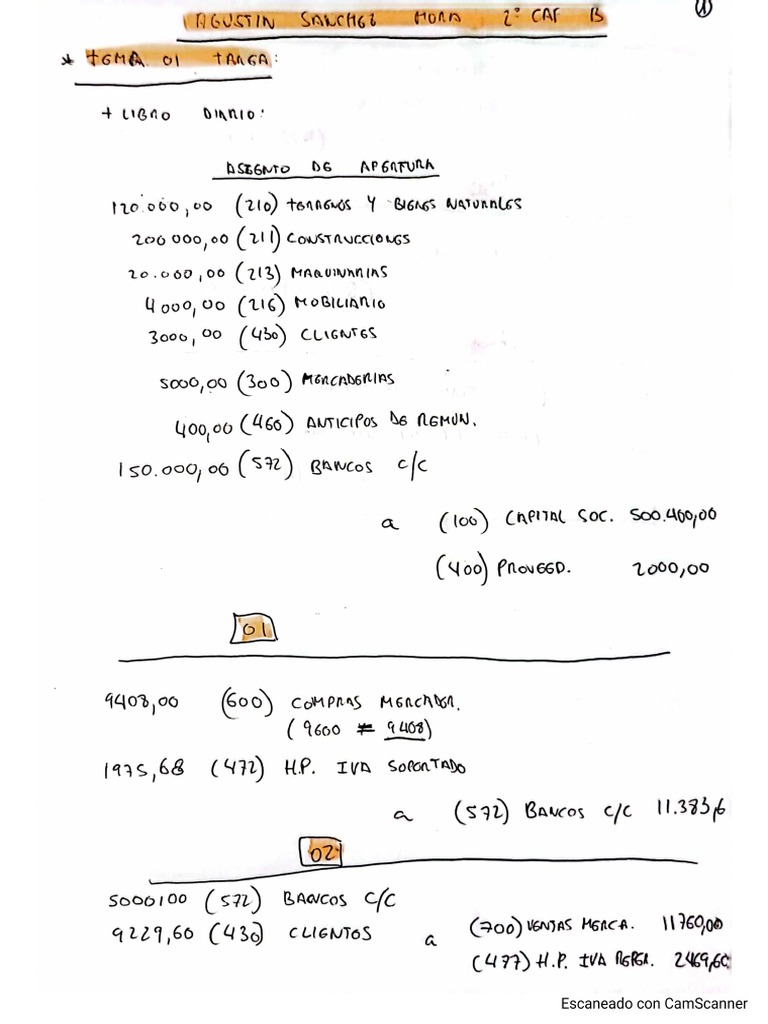 AGUSTIN SANCHEZ MORA 2º CAF B
1
* TEMA 01 TARGA:
+ LIBRO DIARIO:
ASIENTO DE APERTURA
120.000,00 (210) TERRENOS Y BIENES NATURALES
200 000,00 (211) CONSTRUCCIONES
20.000,00 (213) MAQUINARIAS
4000,00 (216) MOBILIARIO
3000,00 (430) CLIENTES
5000,00 (300) MERCADERIAS
400,00 (460) ANTICIPOS DE REMUN.
150.000,00 (572) BANCOS C/C
a (100) CAPITAL SOC. 500.400,00
(400) PROVEED. 2000,00
01
9408,00 (600) COMPRAS MERCADER.
(9600 ≠ 9408)
1975,68 (472) H.P. IVA SOPORTADO
a (572) BANCOS C/C 11.383,6
02
5000100 (572) BANCOS C/C
9229,60 (430) CLIENTES a (700) VENTAS MERCA. 11760,00
(477) H.P. IVA REPER. 2469,60
Escaneado con CamScanner